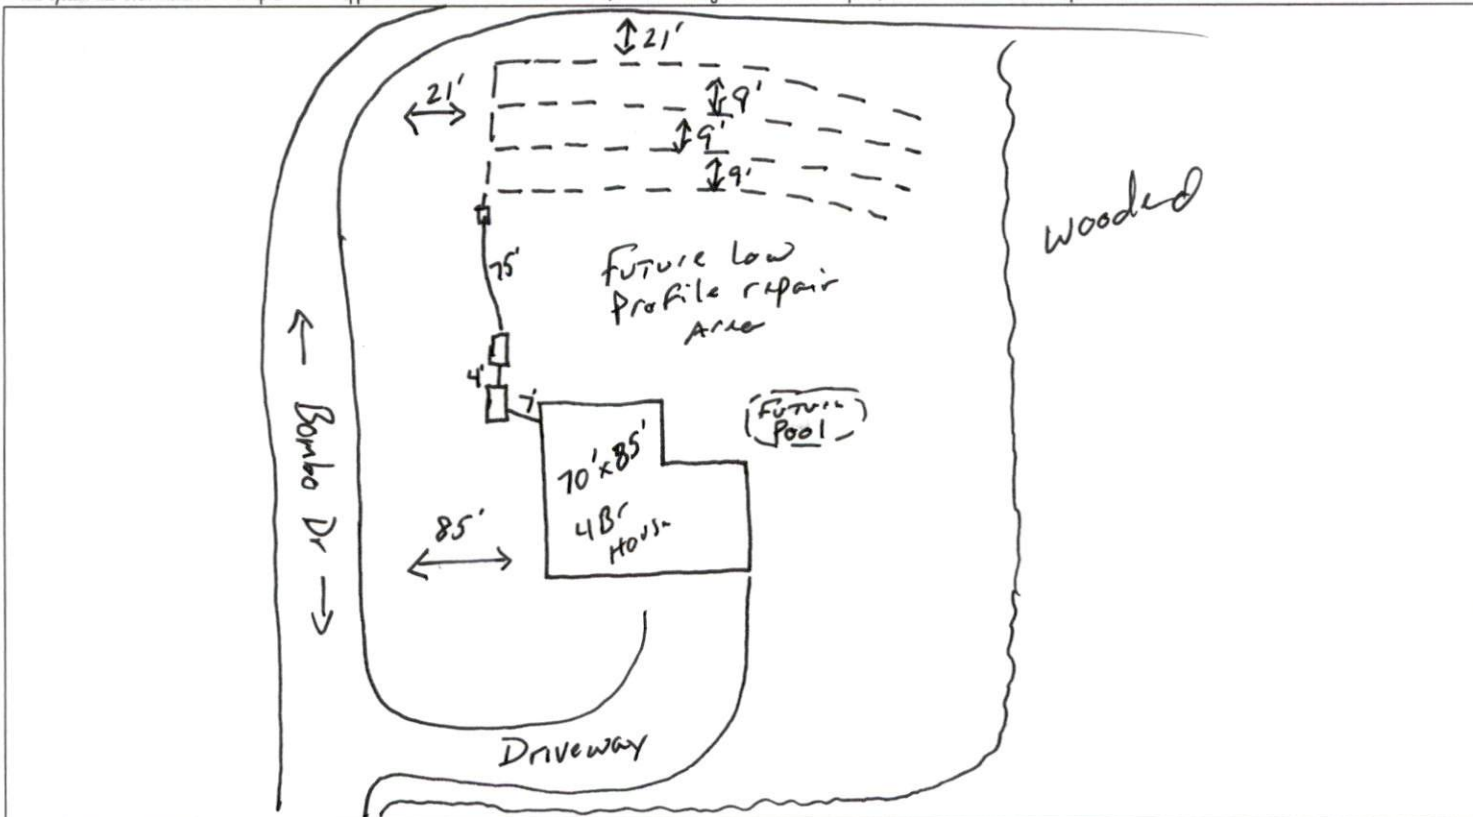 21'
21'
9'
9'
9'
75'
Future low
Profile repair
Area
wooded
4'
7'
Future
Pool
70' x 85'
4 Br
House
85'
← Bombo Dr →
Driveway